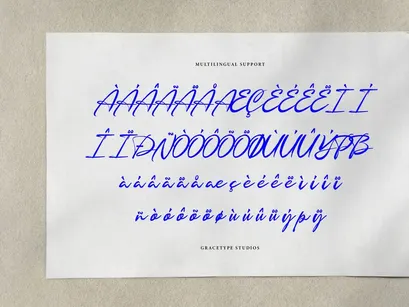 MULTILINGUAL SUPPORT
ÀÁÂÃÄÅÆÇÈÉÊËÌÍ
ÎÏÐÑÒÓÔÕÖØÙÚÛÜÝÞß
àáâãäåæçèéêëìíîï
ñòóôõöøùúûüýþÿ
GRACETYPE STUDIOS